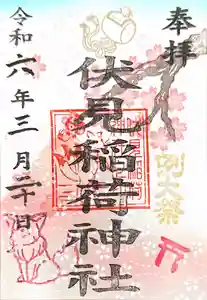 奉拝
例大祭
伏見稲荷神社
令和六年三月二十日